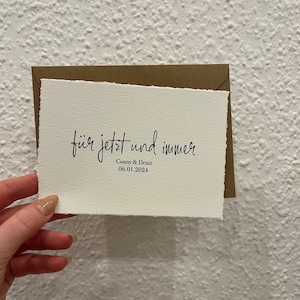 für jetzt und immer
Conny & Denis
06.01.2024